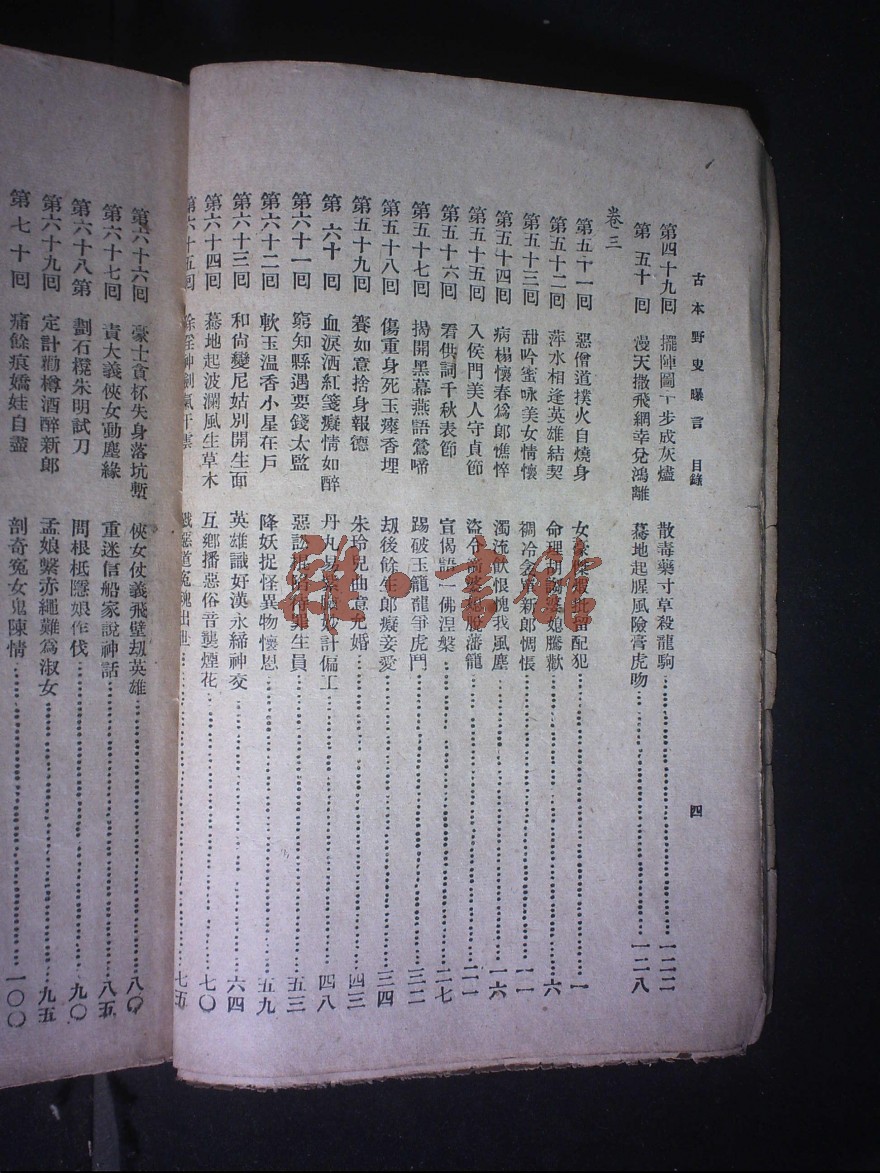 古本野叟曝言 目錄 四
第四十九回 擺陣圖十步成灰燼 散毒藥寸草殺龍駒 一二二
第五十回 漫天撒飛網幸兌鴻離 驀地起腥風險膏虎吻 一二八
卷三
第五十一回 惡僧道撲火自燒身 女 配犯 一
第五十二回 萍水相逢英雄結契 命理 媳騰歡 六
第五十三回 甜吟蜜咏美女情懷 裯冷 新郎惆悵 一一
第五十四回 病楊懷春爲郎憔悴 濁流飲恨愧我風塵 一六
第五十五回 入侯門美人守貞節 盜令 脫藩籠 二一
第五十六回 看供詞千秋表節 宣偈語一佛涅槃 二七
第五十七回 揭開黑幕燕語鶯啼 踢破玉籠龍爭虎鬥 三二
第五十八回 傷重身死玉瘞香埋 劫後餘生郎癡妾愛 三四
第五十九回 賽如意捨身報德 朱玲兒曲意允婚 四三
第六十回 血淚洒紅箋癡情如醉 丹丸易 妙計偏工 四八
第六十一回 窮知縣遇要錢太監 惡訟 罪生員 五三
第六十二回 軟玉溫香小星在戶 降妖捉怪異物懷恩 五九
第六十三回 和尙變尼姑別開生面 英雄識好漢永締神交 六四
第六十四回 驀地起波瀾風生草木 互鄉播惡俗音襲煙花 七〇
第六十五回 除淫神劍氣干雲 戮惡道冤魂出世 七五
第六十六回 豪士貪杯失身落坑塹 俠女仗義飛壁刼英雄 八〇
第六十七回 責大義俠女動塵緣 重迷信船家說神話 八五
第六十八第 劃石欖朱明試刀 問根柢隱娘作伐 九〇
第六十九回 定計勸樽酒醉新郎 孟娘繫赤繩難爲淑女 九五
第七十回 痛餘痕嬌娃自盡 剖奇冤女鬼陳情 一〇〇
雜·書館